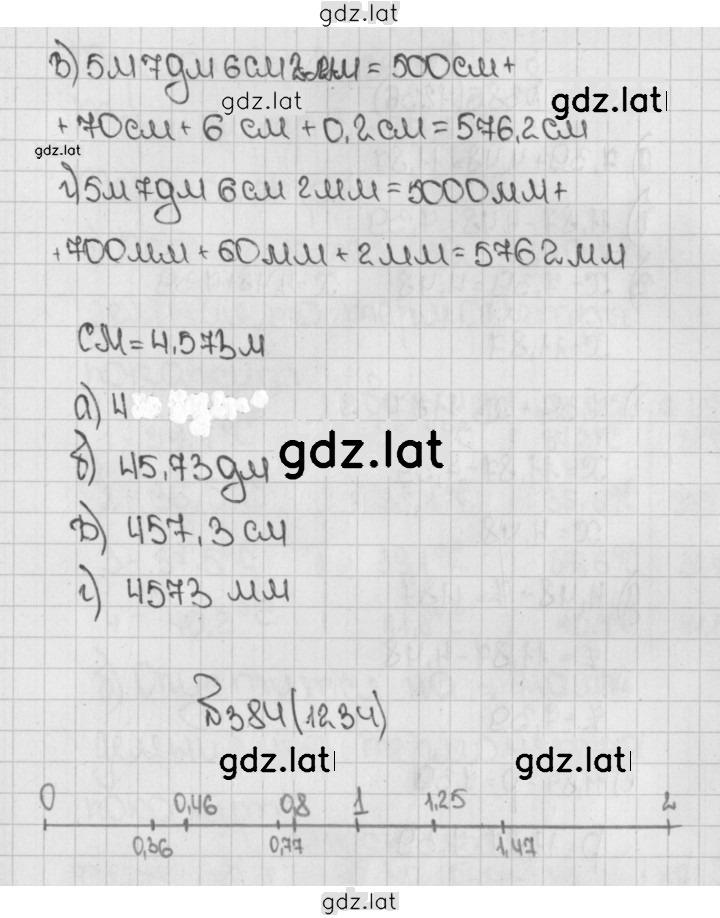 gdz.lat
в) 5м 7дм 6см 2мм = 500см +
gdz.lat
gdz.lat
+ 70см + 6 см + 0,2см = 576,2см
gdz.lat
г) 5м 7дм 6см 2мм = 5000мм +
+ 700мм + 60мм + 2мм = 5762мм
СМ = 4,573м
а) 4
gdz.lat
б) 45,73дм
в) 457,3 см
г) 4573 мм
№384(1234)
gdz.lat
gdz.lat
0 0,46 0,8 1 1,25 2
0,36 0,77 1,47
gdz.lat